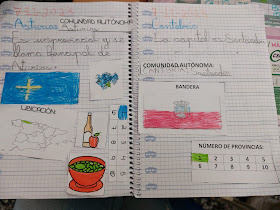 Asturias
COMUNIDAD AUTÓNOMA:
Asturias
Es uniprovincial y se
llama principado de
Asturias.
UBICACIÓN:
Cantabria
La capital es Santander
COMUNIDAD AUTÓNOMA:
CANTABRIA
BANDERA
NÚMERO DE PROVINCIAS:
1 2 3 4 5
6 7 8 9 10